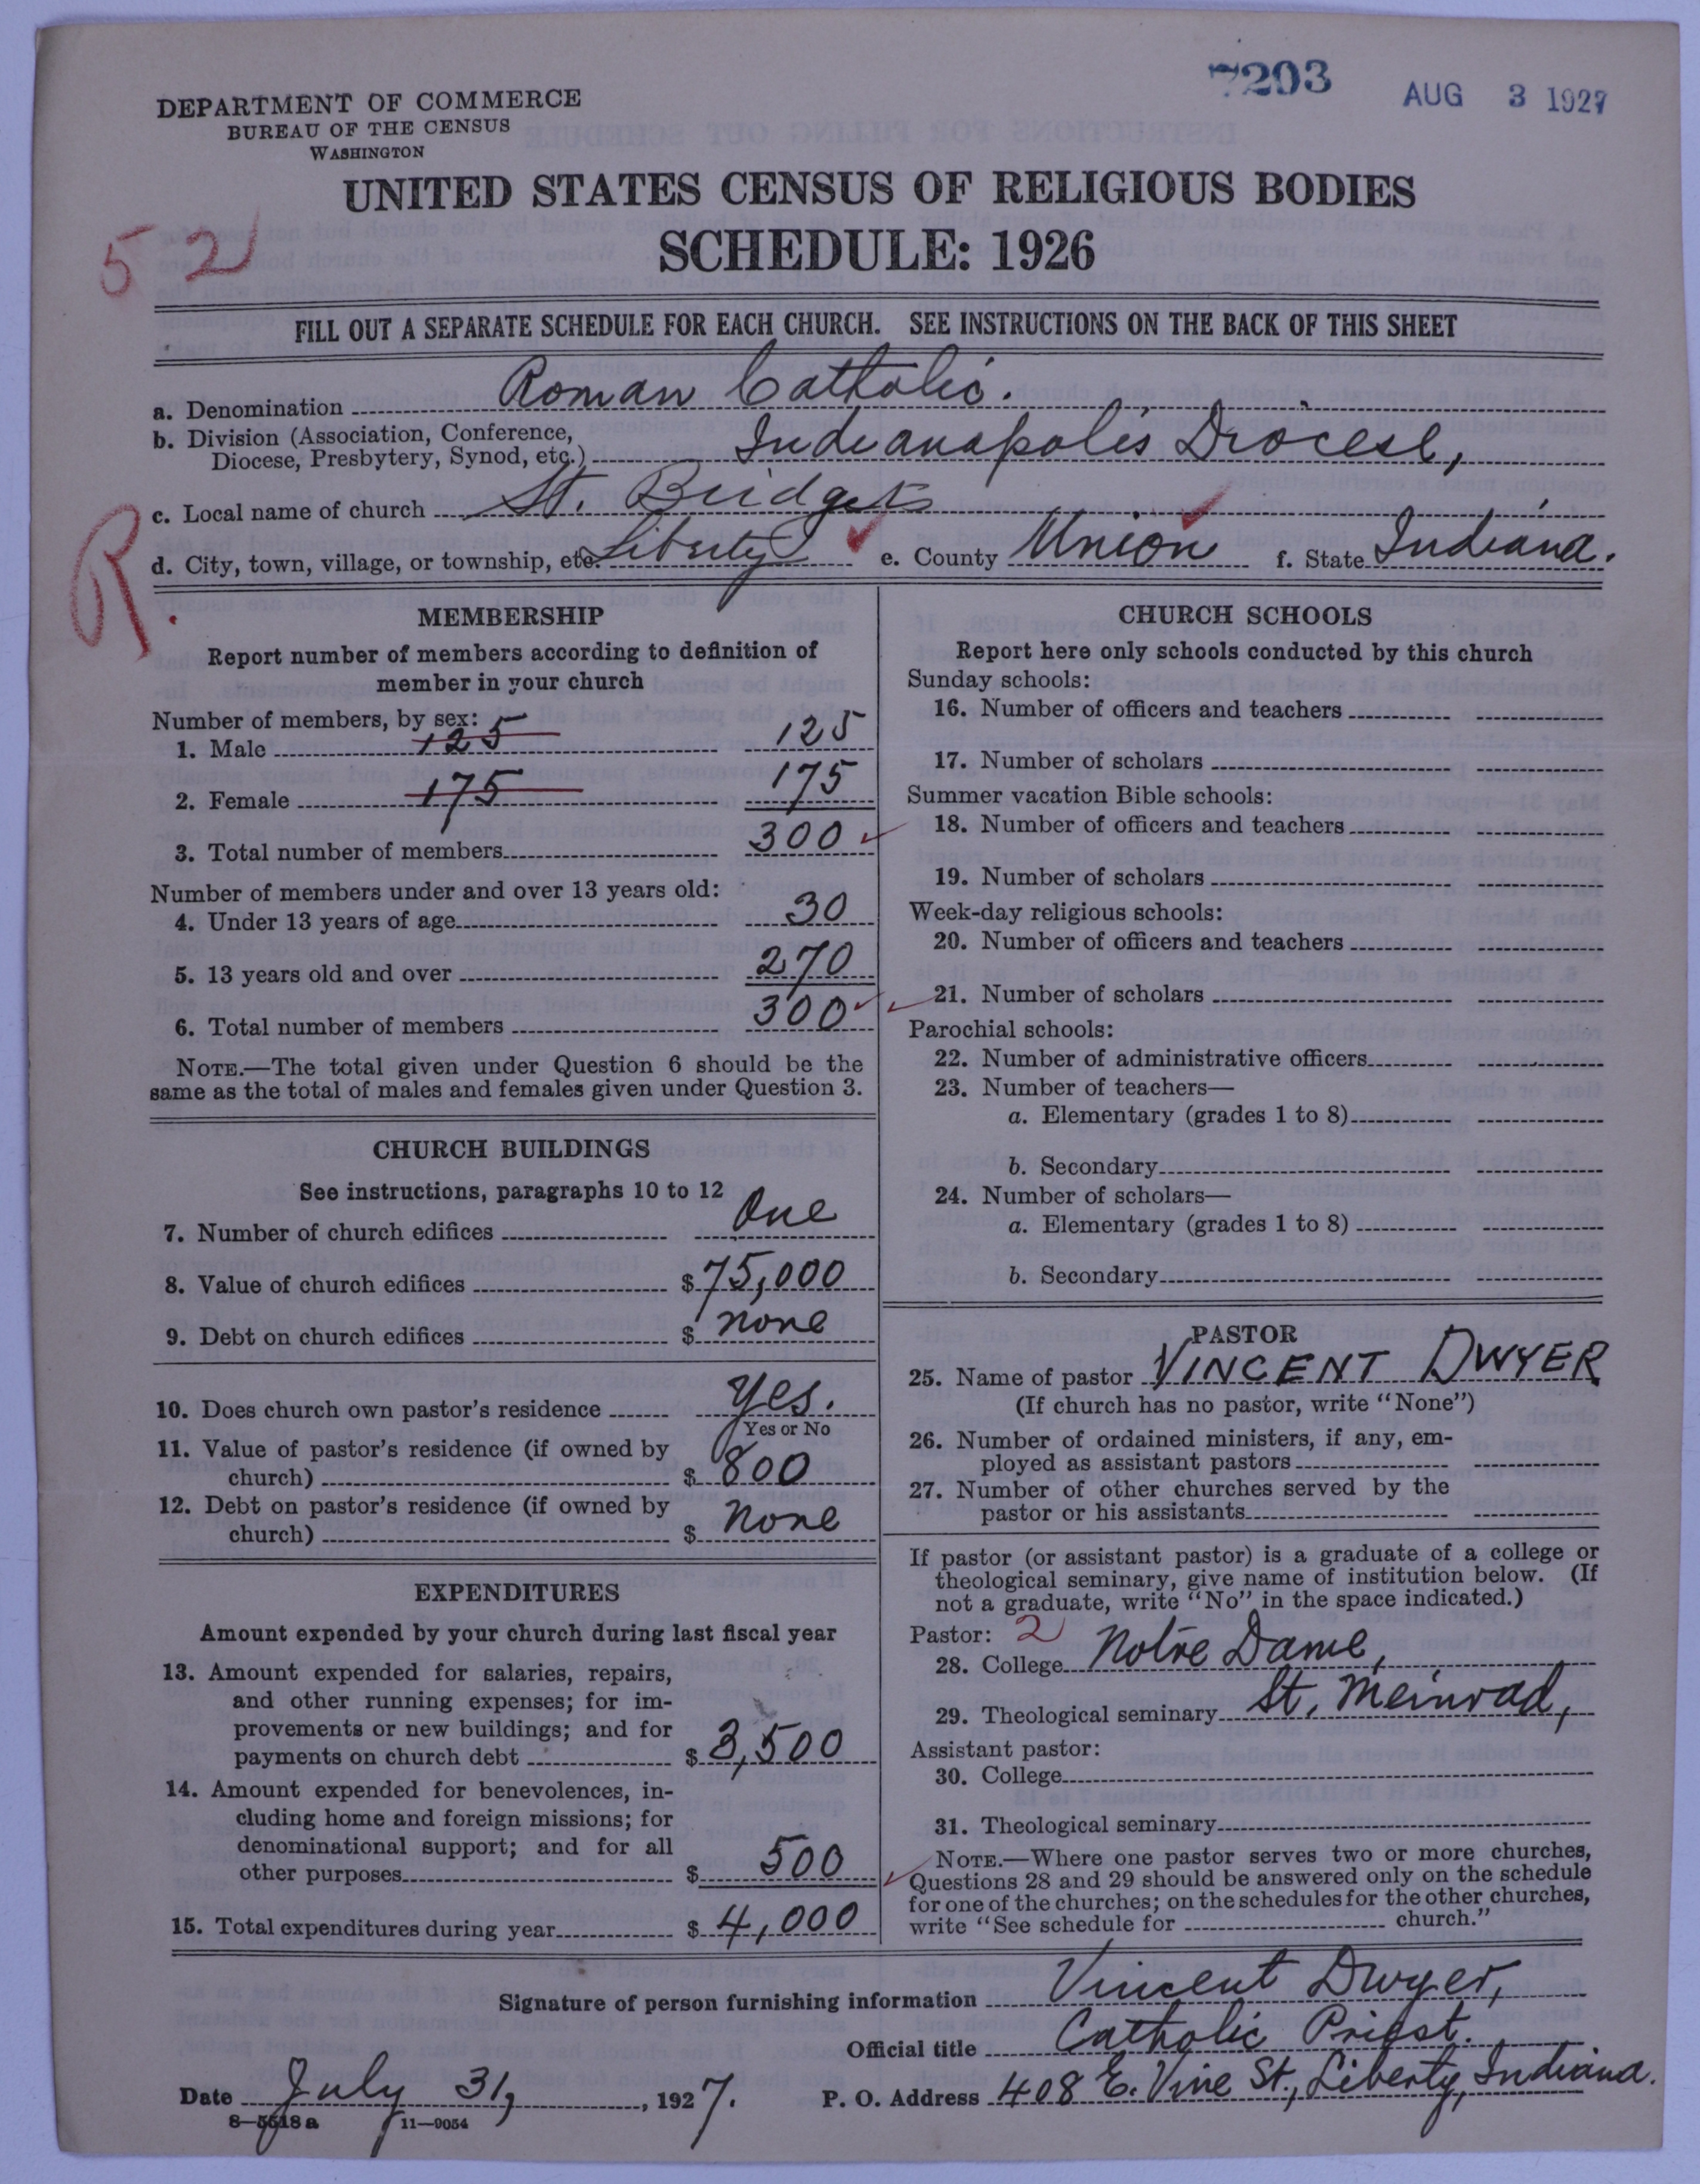 7203
AUG 3 1927
DEPARTMENT OF COMMERCE
BUREAU OF THE CENSUS
WASHINGTON
UNITED STATES CENSUS OF RELIGIOUS BODIES
SCHEDULE: 1926
5 2
FILL OUT A SEPARATE SCHEDULE FOR EACH CHURCH. SEE INSTRUCTIONS ON THE BACK OF THIS SHEET
a. Denomination Roman Catholic.
b. Division (Association, Conference,
Diocese, Presbytery, Synod, etc.) Indianapolis Diocese,
c. Local name of church St. Bridgets
R.
d. City, town, village, or township, etc. Liberty e. County Union f. State Indiana.
MEMBERSHIP
Report number of members according to definition of
member in your church
Number of members, by sex:
1. Male 125 125
2. Female 175 175
3. Total number of members 300
Number of members under and over 13 years old:
4. Under 13 years of age 30
5. 13 years old and over 270
6. Total number of members 300
NOTE.—The total given under Question 6 should be the
same as the total of males and females given under Question 3.
CHURCH BUILDINGS
See instructions, paragraphs 10 to 12
7. Number of church edifices One
8. Value of church edifices $ 75,000
9. Debt on church edifices $ none
10. Does church own pastor's residence Yes.
Yes or No
11. Value of pastor's residence (if owned by
church) $ 800
12. Debt on pastor's residence (if owned by
church) $ none
EXPENDITURES
Amount expended by your church during last fiscal year
13. Amount expended for salaries, repairs,
and other running expenses; for im-
provements or new buildings; and for
payments on church debt $ 3,500
14. Amount expended for benevolences, in-
cluding home and foreign missions; for
denominational support; and for all
other purposes $ 500
15. Total expenditures during year $ 4,000
CHURCH SCHOOLS
Report here only schools conducted by this church
Sunday schools:
16. Number of officers and teachers
17. Number of scholars
Summer vacation Bible schools:
18. Number of officers and teachers
19. Number of scholars
Week-day religious schools:
20. Number of officers and teachers
21. Number of scholars
Parochial schools:
22. Number of administrative officers
23. Number of teachers—
a. Elementary (grades 1 to 8)
b. Secondary
24. Number of scholars—
a. Elementary (grades 1 to 8)
b. Secondary
PASTOR
25. Name of pastor VINCENT DWYER
(If church has no pastor, write "None")
26. Number of ordained ministers, if any, em-
ployed as assistant pastors
27. Number of other churches served by the
pastor or his assistants
If pastor (or assistant pastor) is a graduate of a college or
theological seminary, give name of institution below. (If
not a graduate, write "No" in the space indicated.)
Pastor: 2
28. College Notre Dame,
29. Theological seminary St. Meinrad,
Assistant pastor:
30. College
31. Theological seminary
NOTE.—Where one pastor serves two or more churches,
Questions 28 and 29 should be answered only on the schedule
for one of the churches; on the schedules for the other churches,
write "See schedule for church."
Signature of person furnishing information Vincent Dwyer,
Official title Catholic Priest.
Date July 31, 1927. P. O. Address 408 E. Vine St., Liberty, Indiana.
8—5518 a 11—9054